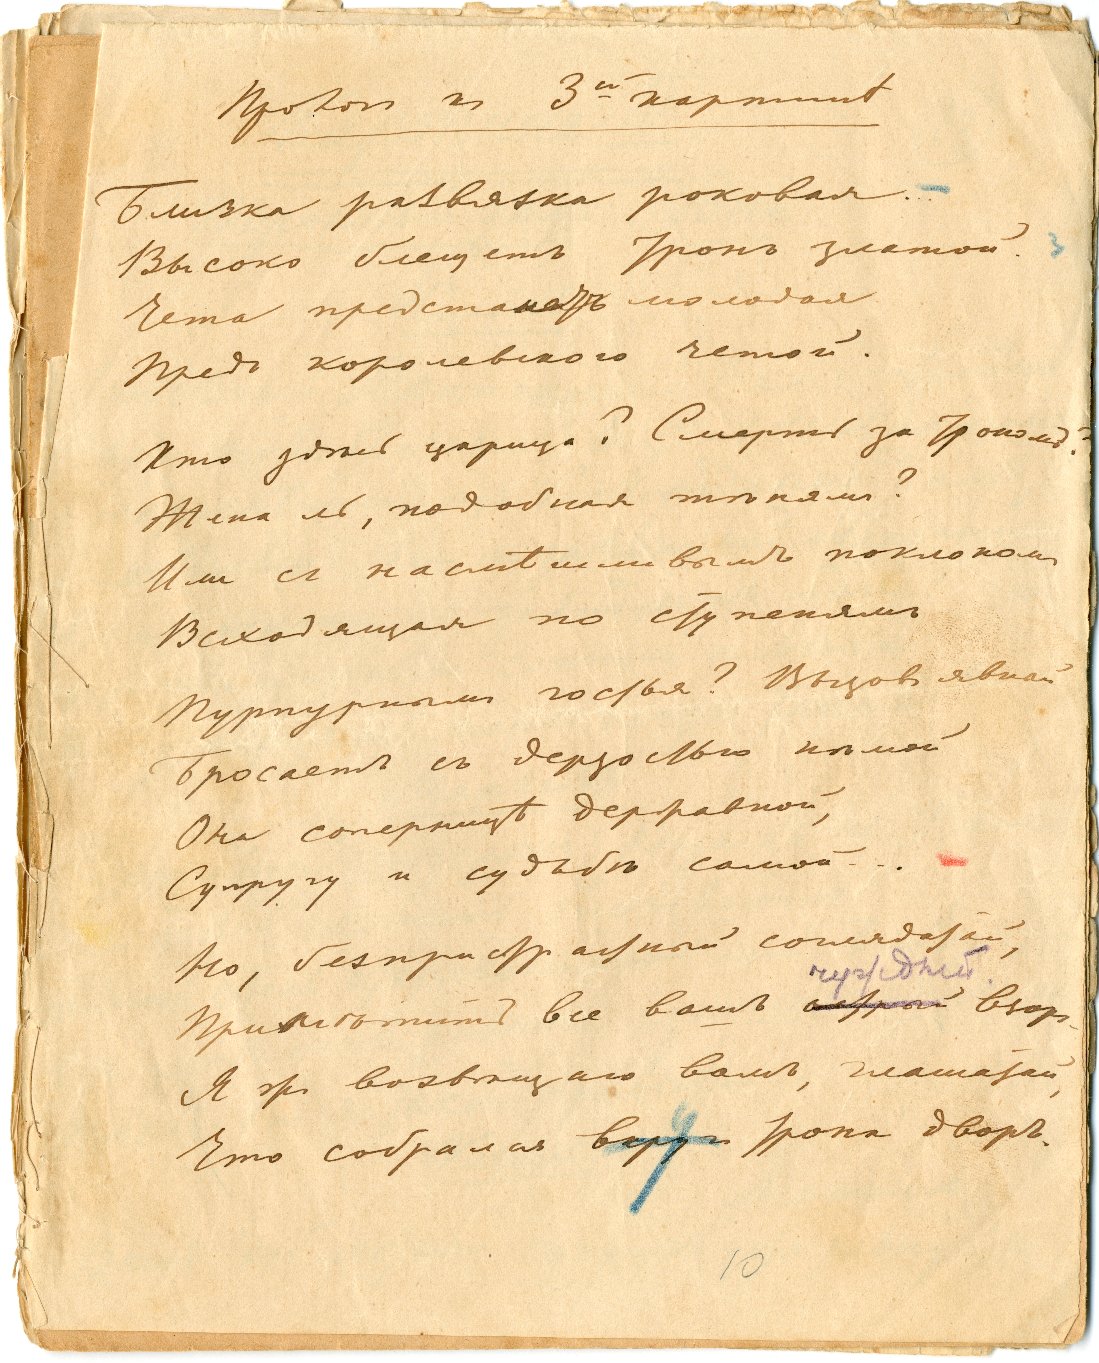 Пролог къ 3ей картинѣ
Близка развязка роковая...
Высоко блещетъ тронъ златой.
Чета предстанетъ молодая
Предъ королевскою четой.
Кто здѣсь царица? Смерть за трономъ?
Жена ль, подобная тѣнямъ?
Или съ насмѣшливымъ поклономъ
Всходящая по ступенямъ
Пурпурнымъ гостья? Вызовъ явный
Бросаетъ съ дерзостью нѣмой
Она соперницѣ державной,
Супругу и судьбѣ самой...
Но, безпристрастный соглядатай,
чуждый
Примѣтитъ все вашъ острый взоръ.
Я жъ возвѣщаю вамъ, глашатай,
у
Что собрался вкругъ трона дворъ.
10